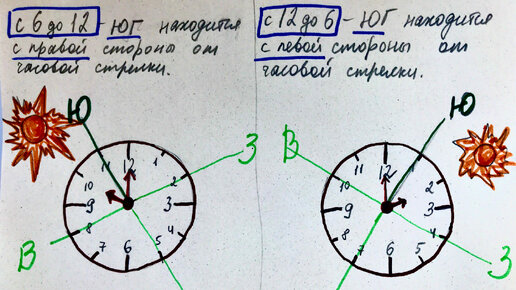 с 6 до 12 - ЮГ находится
с правой стороны от
часовой стрелки.
с 12 до 6 - ЮГ находится
с левой стороны от
часовой стрелки.
Ю
З
В
12
1
2
3
4
5
6
7
8
9
10
11
Ю
В
З
12
2
3
4
5
6
7
8
9
10
11